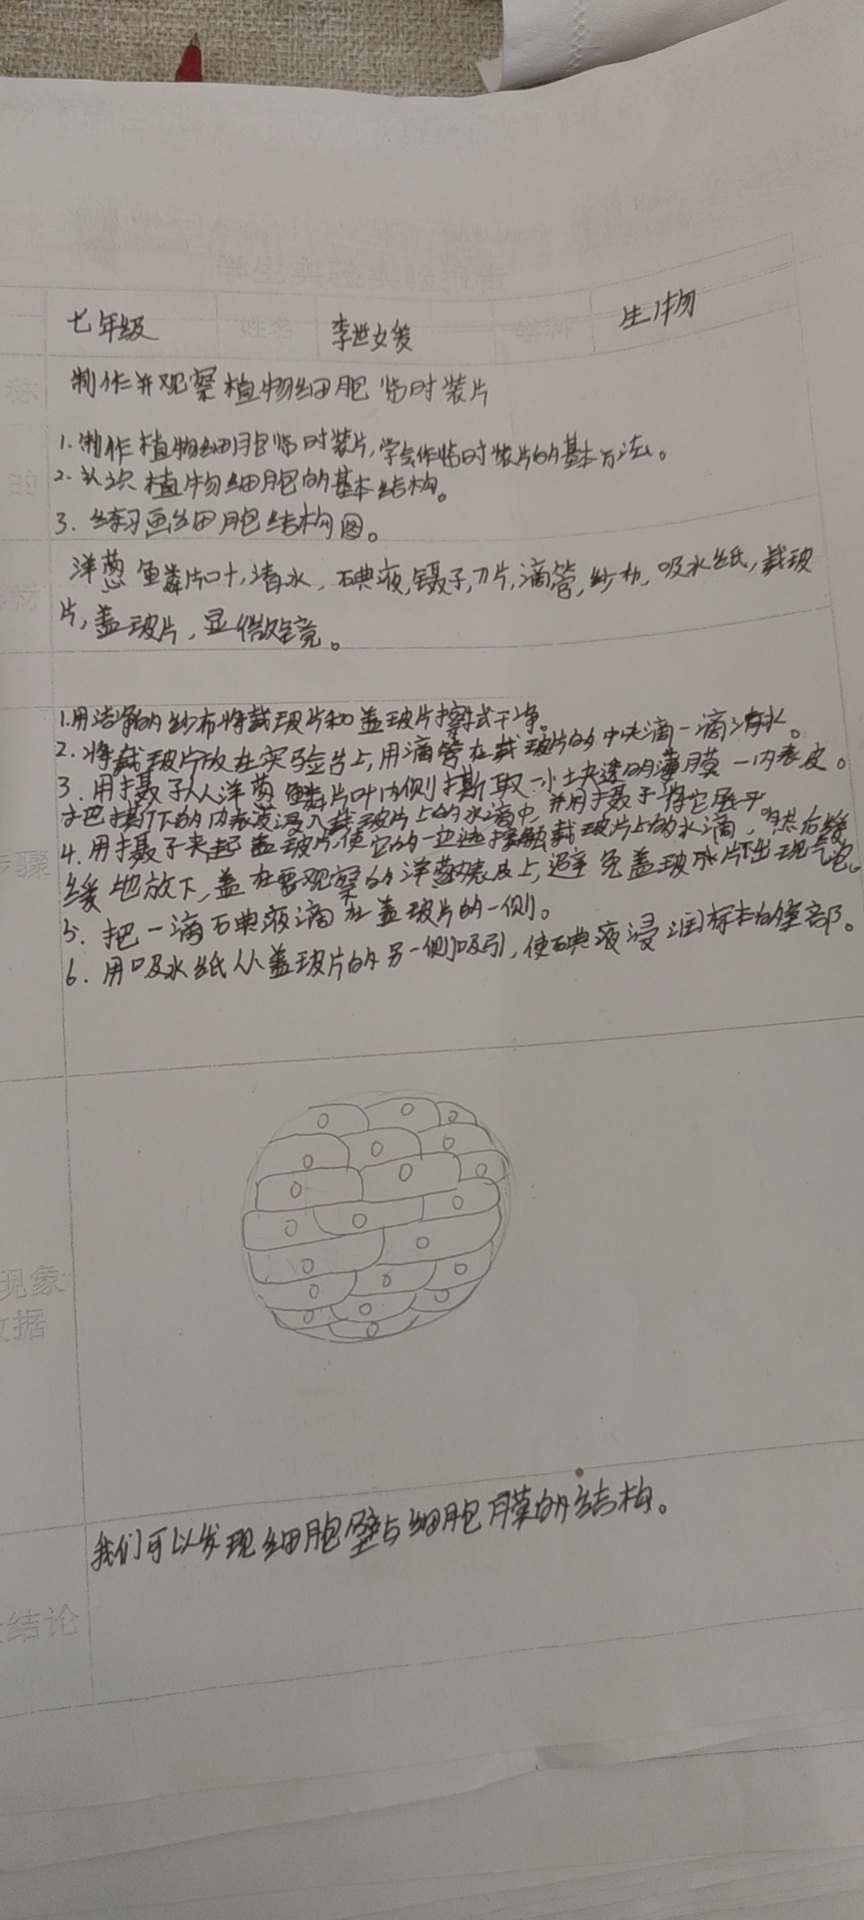 学生实验实验报告
七年级 姓名 李世媛 学科 生物
称 制作并观察植物细胞临时装片
1.制作植物细胞临时装片,学会作临时装片的基本方法。
的 2.认识植物细胞的基本结构。
3.练习画细胞结构图。
材 洋葱鳞片叶,清水,碘液,镊子,刀片,滴管,纱布,吸水纸,载玻
片,盖玻片,显微镜。
1.用洁净的纱布将载玻片和盖玻片擦拭干净。
2.将载玻片放在实验台上,用滴管在载玻片的中央滴一滴清水。
3.用镊子从洋葱鳞片叶内侧撕取一小块透明薄膜—内表皮。
把撕下的内表皮浸入载玻片上的水滴中,并用镊子将它展平
4.用镊子夹起盖玻片,使它的一边接触载玻片上的水滴,然后缓
步骤 缓地放下,盖在要观察的洋葱表皮上,避免盖玻片下出现气泡。
5.把一滴碘液滴在盖玻片的一侧。
6.用吸水纸从盖玻片的另一侧吸引,使碘液浸润标本的全部。
现象
数据
我们可以发现细胞壁与细胞膜的结构。
结论